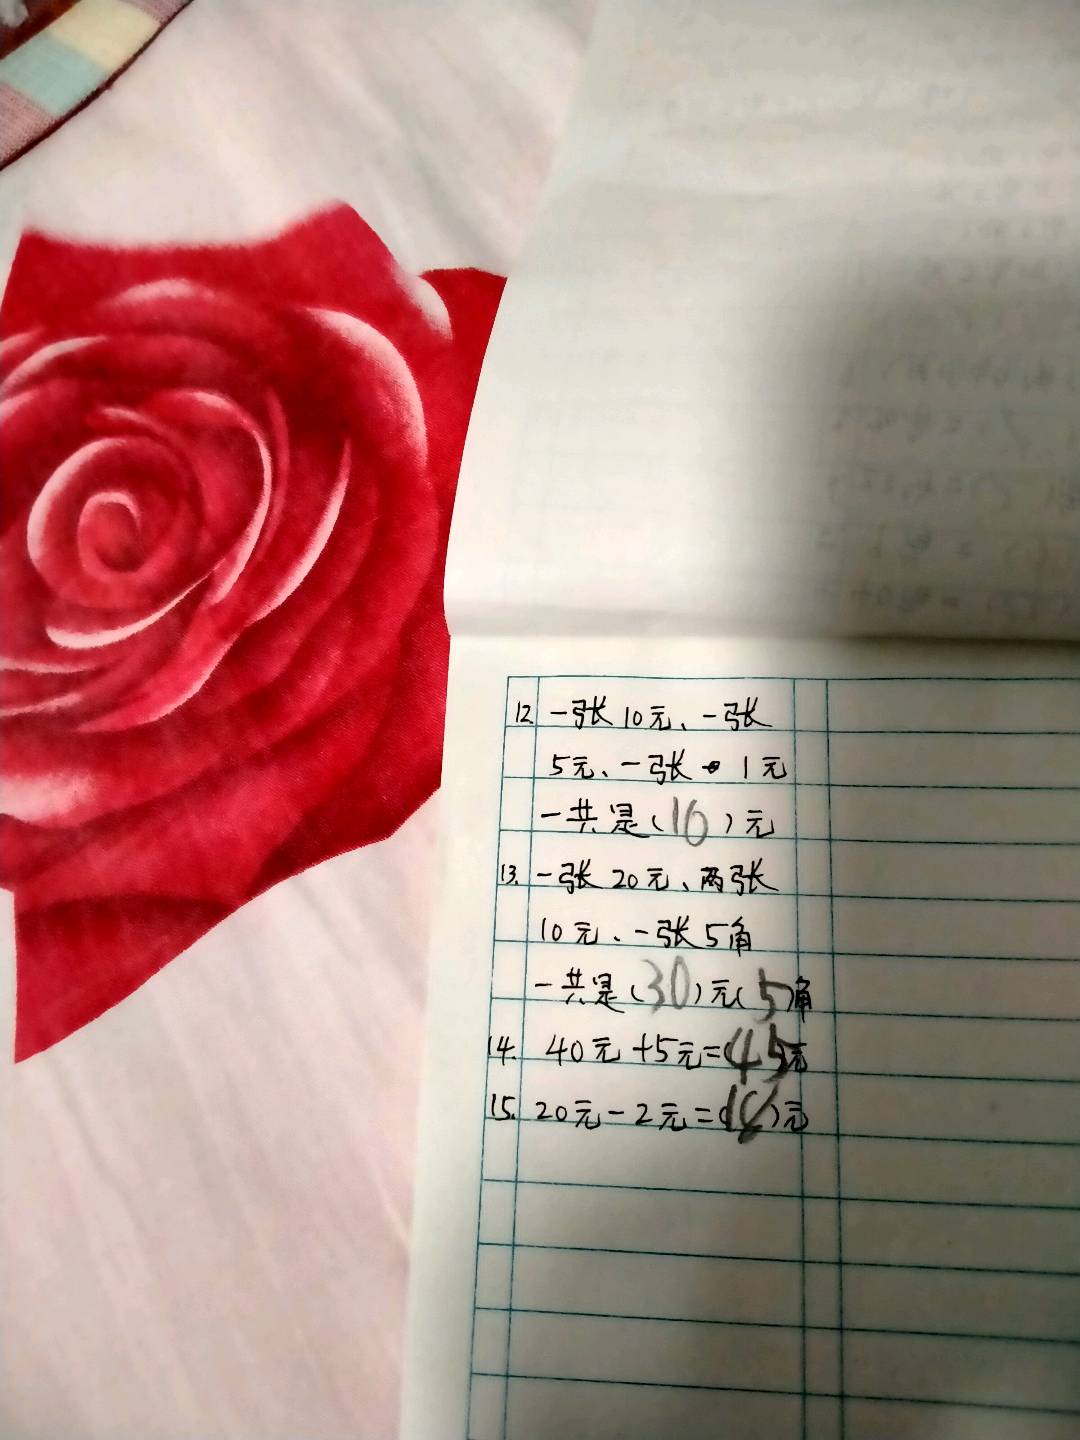 12. 一张10元、一张
5元、一张 1元
一共是(16)元
13. 一张20元、两张
10元、一张5角
一共是(30)元(5)角
14. 40元+5元=(45)元
15. 20元-2元=(18)元